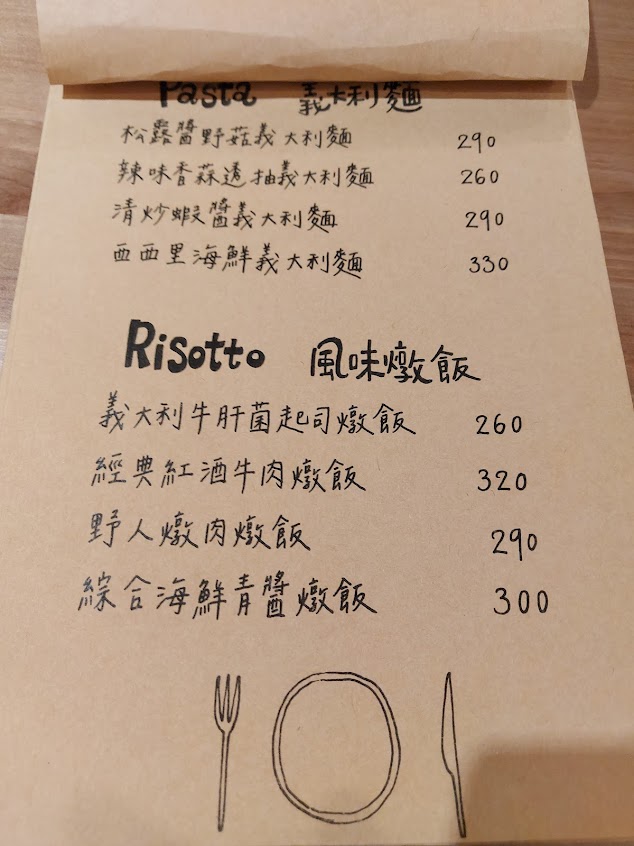 Pasta 義大利麵
松露醬野菇義大利麵 290
辣味香蒜透抽義大利麵 260
清炒蝦醬義大利麵 290
西西里海鮮義大利麵 330
Risotto 風味燉飯
義大利牛肝菌起司燉飯 260
經典紅酒牛肉燉飯 320
野人燉肉燉飯 290
綜合海鮮青醬燉飯 300